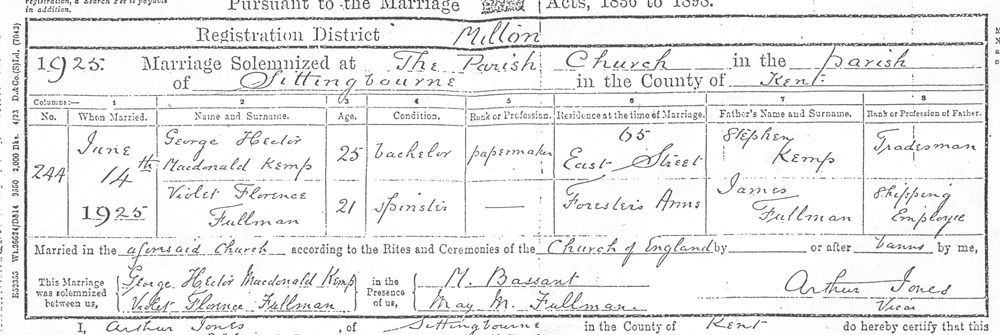 registration, a Search Fee is payable
in addition.
Pursuant to the Marriage Acts, 1836 to 1898.
Registration District Milton
1925. Marriage Solemnized at The Parish Church in the parish
of Sittingbourne in the County of Kent
Columns:— 1 2 3 4 5 6 7 8
No. When Married. Name and Surname. Age. Condition. Rank or Profession. Residence at the time of Marriage. Father's Name and Surname. Rank or Profession of Father.
244 June 14th 1925
George Hector Macdonald Kemp 25 bachelor papermaker 65 East Street Stephen Kemp Tradesman
Violet Florence Fullman 21 spinster — Foresters Arms James Fullman Shipping Employee
Married in the aforesaid Church according to the Rites and Ceremonies of the Church of England by or after banns by me,
This Marriage was solemnized between us, George Hector Macdonald Kemp in the Presence of us, M. Bassant Arthur Jones
Violet Florence Fullman May M. Fullman. Vicar
I, Arthur Jones, of Sittingbourne in the County of Kent do hereby certify that this